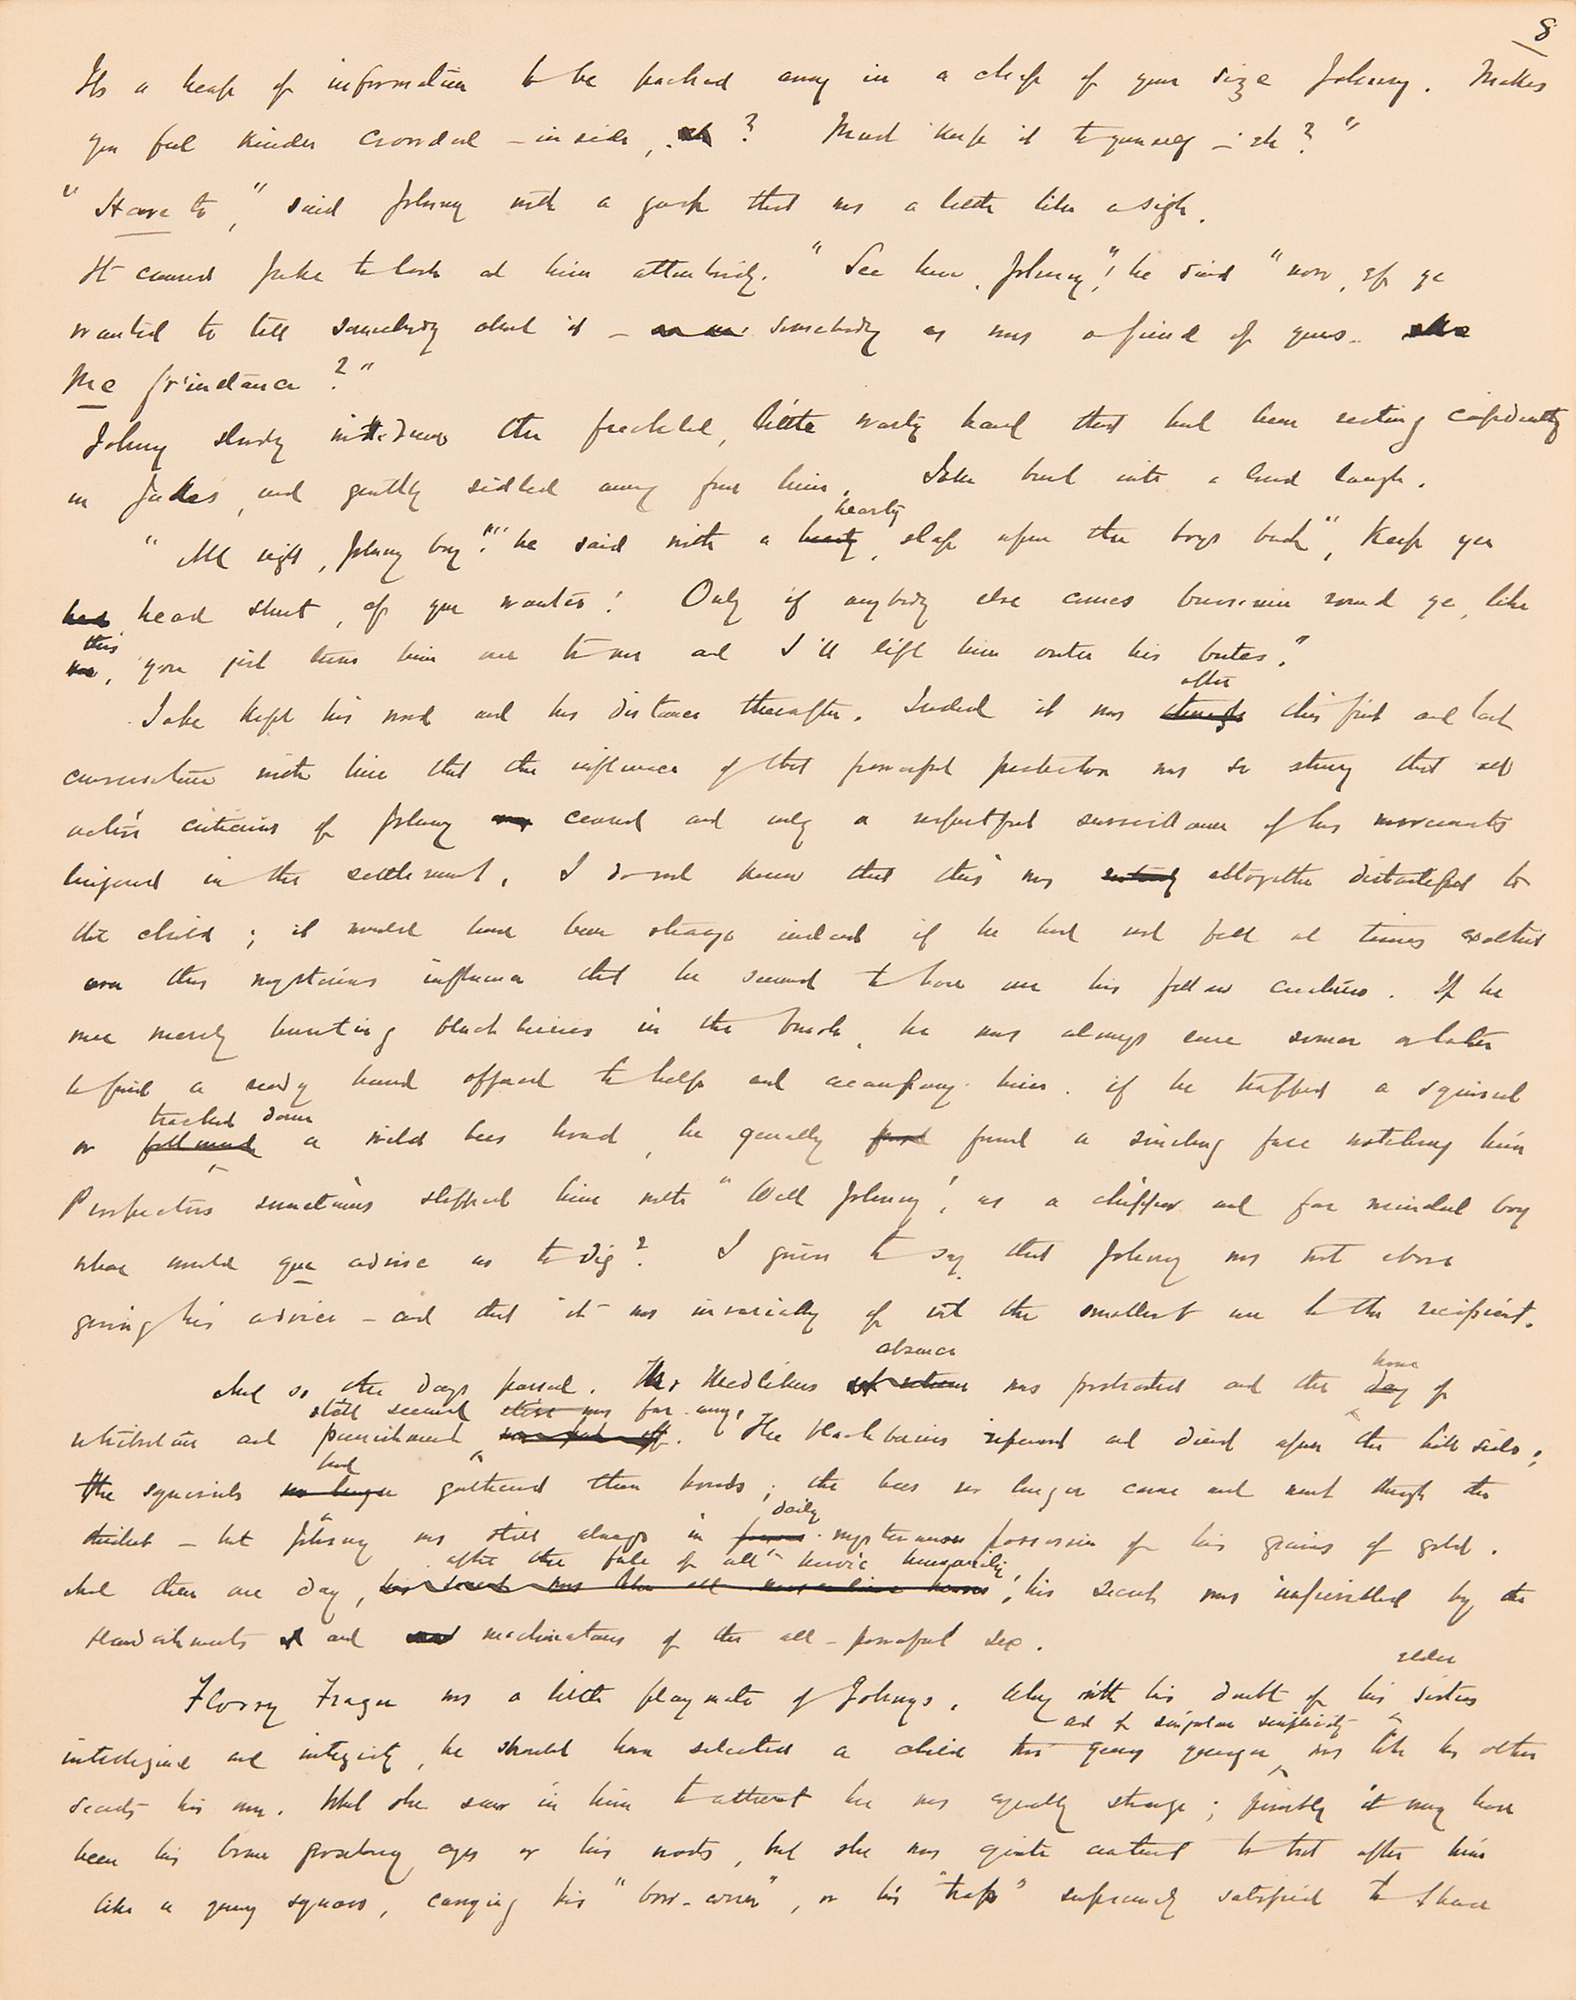 8
Its a heap of information to be packed away in a chap of your size Johnny. Makes
you feel kinder crowded – inside, eh ? Must keep it to yourself – eh ? "
" Have to , " said Johnny with a gasp that was a little like a sigh.
It caused Jake to look at him attentively. " See here, Johnny " ! he said " now, ef ye
wanted to tell somebody about it – somebody as was a friend of yours –
Me fr'instance ? "
Johnny slowly withdrew the freckled, little warty hand that had been resting confidently
in Jakes, and gently sidled away from him. Jake burst into a loud laugh.
hearty
" All right, Johnny boy " ! he said with a hearty slap upon the boys back ", Keep yer
head shut, ef yer wanter ! Only if anybody else comes bummin round ye, like
this
me, you jist turn him over to me and I'll lift him outer his butes. "
after
Jake kept his word and his distance thereafter. Indeed it was through this first and last
conversation with him that the influence of that powerful protector was so strong that all
active criticisms of Johnny ceased and only a respectful surveillance of his movements
lingered in the settlement. I do not know that this was entirely altogether distasteful to
the child ; it would have been strange indeed if he had not felt at times exalted
over this mysterious influence that he seemed to have over his fellow creatures. If he
were merely hunting blackberries in the brush, he was always sure sooner or later
to find a ready hand offered to help and accompany him. if he trapped a squirrel
tracked down
or followed a wild bees hoard, he generally found found a smiling face watching him
Prospectors sometimes stopped him with " Well Johnny ', as a chipper and far minded boy
whar would you advise us to dig ? I grieve to say that Johnny was not above
giving his advice – and that it was invariably of not the smallest use to the recipient.
absence
hour
And so the days passed. Mr Medlikers was protracted and the day of
still seemed far away.
retribution and punishment was put off. The blackberries ripened and dried upon the hillside ;
had
the squirrels no longer gathered their hoards ; the bees no longer came and went through the
daily
thicket – but Johnny was still always in mysterious possession of his grains of gold.
after the fate of all heroic humanity
And then one day, his secret was like all heroes , his secret was imperilled by the
blandishments and machinations of the all-powerful sex.
elder
Florry Fraser was a little playmate of Johnnys. Why with his doubt of his sisters
and of singular simplicity
intelligence and integrity, he should have selected a child two years younger, was like his other
secrets his own. What she saw in him to attract her was equally strange ; possibly it may have
been his brown gooseberry eyes or his warts, but she was quite content to trot after him
like a young squaw, carrying his " bow-arrer ", or his " trap " supremely satisfied to share